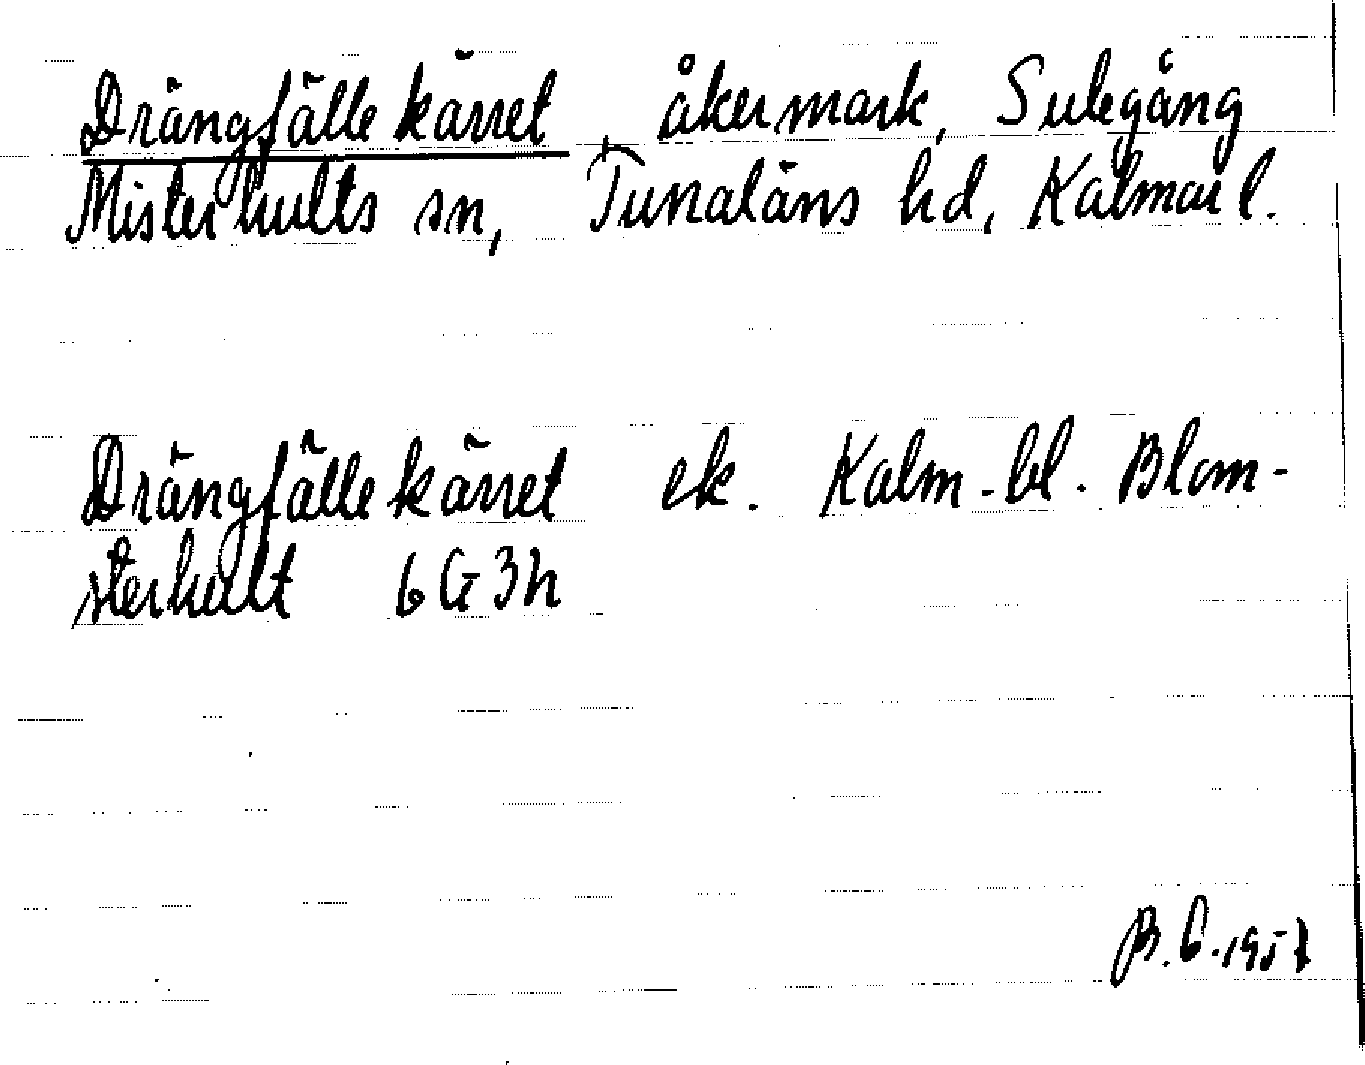 Drängfällekärret, åkermark, Sulegång
Misterhults sn, Tunaläns hd, Kalmar l.
Drängfällekärret ek. Kalm-bl. Blom-
sterhult 6G3h
B.C. 1957